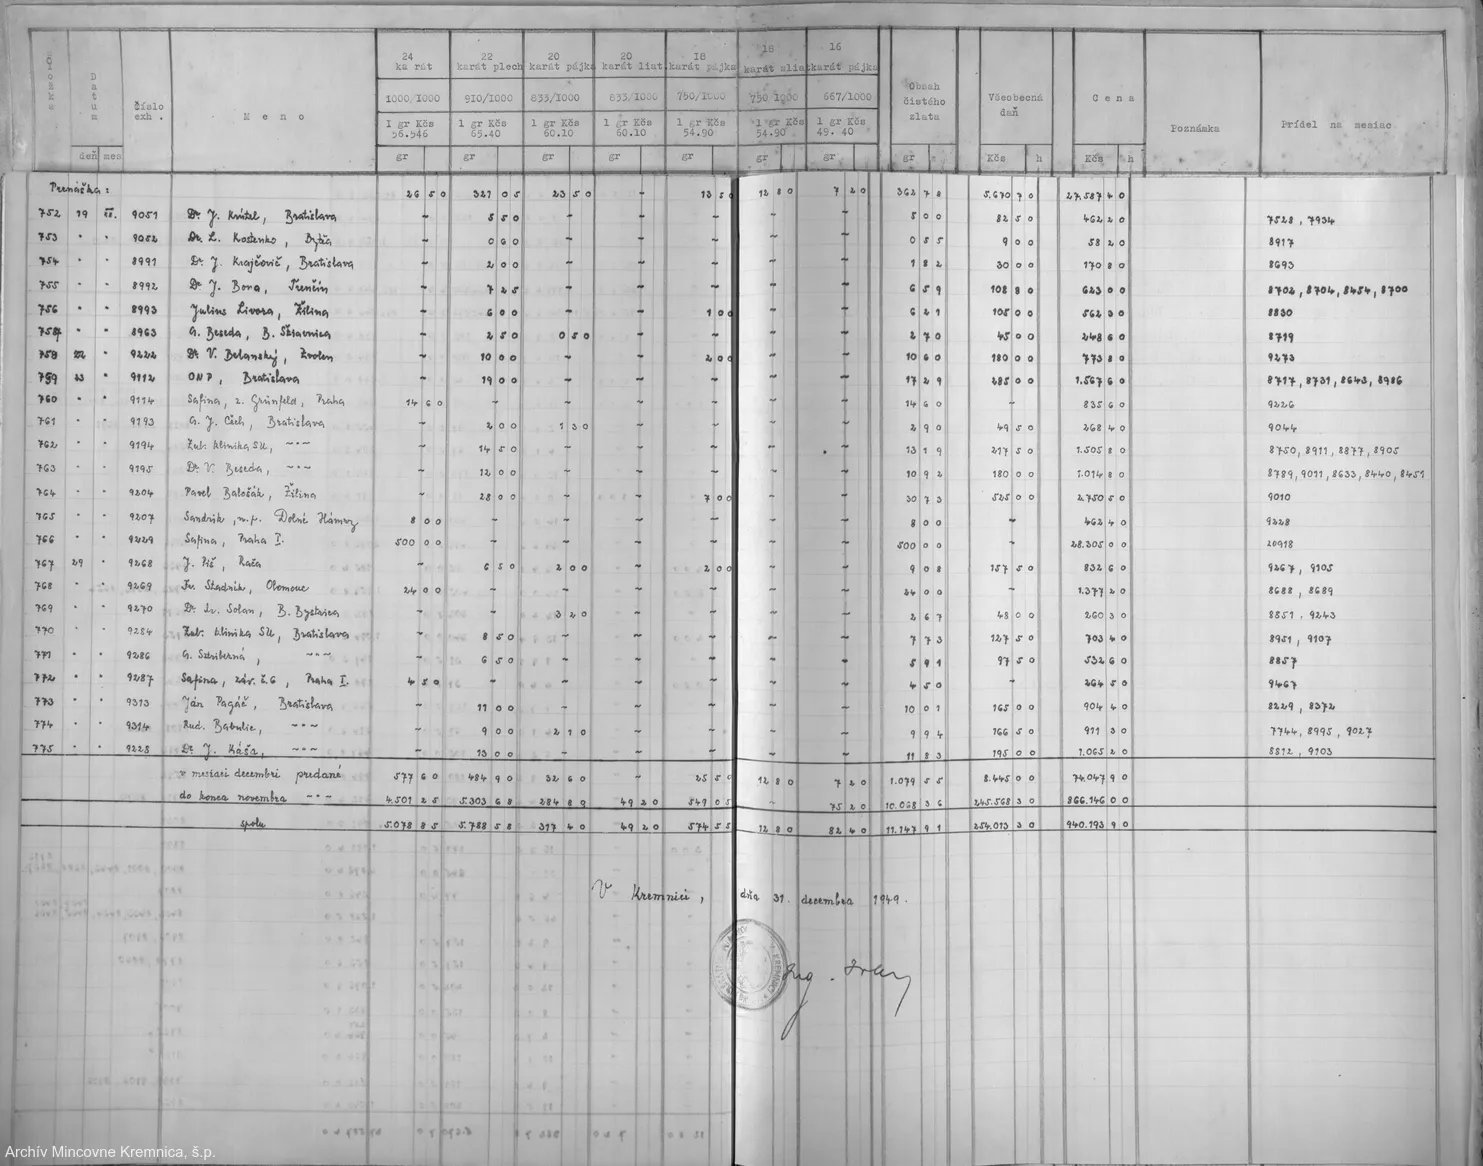 Číslo Datum Číslo exh. Meno 24 karát 22 karát plech 20 karát pájka 20 karát liat 18 karát pájka 18 karát zlia 16 karát pájka Obsah čistého zlata Všeobecná daň Cena Poznámka Prídel na mesiac
1000/1000 910/1000 833/1000 833/1000 750/1000 750 1000 667/1000
1 gr Kčs 56.546 1 gr Kčs 65.40 1 gr Kčs 60.10 1 gr Kčs 60.10 1 gr Kčs 54.90 1 gr Kčs 54.90 1 gr Kčs 49.40
deň mes gr gr gr gr gr gr gr gr Kčs h Kčs h
Prenáška: 26 50 321 05 23 50 - 13 50 12 80 7 20 362 78 5.670 70 27.587 40
752 19 XII. 9051 Dr. J. Knítel, Bratislava - 5 50 - - - - - 5 00 82 50 462 20 7528, 7934
753 " " 9052 Dr. L. Kostenko, Bytča - 0 60 - - - - - 0 55 9 00 58 20 8917
754 " " 8991 Dr. J. Krajčovič, Bratislava - 2 00 - - - - - 1 82 30 00 170 80 8693
755 " " 8992 Dr. J. Bona, Trenčín - 7 25 - - - - - 6 59 108 80 623 00 8702, 8704, 8454, 8700
756 " " 8993 Julius Livora, Žilina - 6 00 - - 1 00 - - 6 21 105 00 562 30 8830
757 " " 8963 G. Beseda, B. Štiavnica - 2 50 0 50 - - - - 2 70 45 00 248 60 8719
758 22 " 9222 Dr. V. Belanský, Zvolen - 10 00 - - 2 00 - - 10 60 180 00 773 80 9273
759 23 " 9112 ONP, Bratislava - 19 00 - - - - - 17 29 285 00 1.567 60 8717, 8731, 8643, 8986
760 " " 9114 Safina, z. Grünfeld, Praha 14 60 - - - - - - 14 60 - 835 60 9226
761 " " 9193 G. J. Čech, Bratislava - 2 00 1 30 - - - - 2 90 49 50 268 40 9044
762 " " 9194 Zub. klinika SU, -"- - 14 50 - - - - - 13 19 217 50 1.505 80 8750, 8911, 8877, 8905
763 " " 9195 Dr. V. Beseda, -"- - 12 00 - - - - - 10 92 180 00 1.014 80 8789, 9011, 8633, 8440, 8451
764 " " 9204 Pavel Balošák, Žilina - 28 00 - - 7 00 - - 30 73 525 00 2.750 50 9010
765 " " 9207 Sandrik, n.p. Dolné Hámry 8 00 - - - - - - 8 00 - 462 40 9228
766 " " 9229 Safina, Praha I. 500 00 - - - - - - 500 00 - 28.305 00 20918
767 29 " 9268 J. Piš, Rača - 6 50 2 00 - 2 00 - - 9 08 157 50 832 60 9267, 9105
768 " " 9269 Fr. Stadnik, Olomouc 24 00 - - - - - - 24 00 - 1.377 20 8688, 8689
769 " " 9270 Dr. Lr. Solan, B. Bystrica - - 3 20 - - - - 2 67 48 00 260 30 8851, 9243
770 " " 9284 Zub. klinika SU, Bratislava - 8 50 - - - - - 7 73 127 50 703 40 8951, 9107
771 " " 9286 -"- - 6 50 - - - - - 5 91 97 50 532 60 8857
772 " " 9287 Safina, záv. č. 6, Praha I. 4 50 - - - - - - 4 50 - 264 50 9467
773 " " 9313 Ján Pagáč, Bratislava - 11 00 - - - - - 10 01 165 00 904 40 8229, 8372
774 " " 9314 Rud. Babulic, -"- - 9 00 2 10 - - - - 9 94 166 50 911 30 7744, 8995, 9027
775 " " 9228 Dr. J. Káša, -"- - 13 00 - - - - - 11 83 195 00 1.065 20 8812, 9103
v mesiaci decembri predané 577 60 484 90 32 60 - 25 50 12 80 7 20 1.079 55 8.445 00 74.047 90
do konca novembra -"- 4.501 25 5.303 68 284 80 49 20 549 05 - 75 20 10.068 36 245.568 30 866.146 00
spolu 5.078 85 5.788 58 317 40 49 20 574 55 12 80 82 40 11.147 91 254.013 30 940.193 90
V Kremnici, dňa 31. decembra 1949.
Ing.
Archív Mincovne Kremnica, š.p.